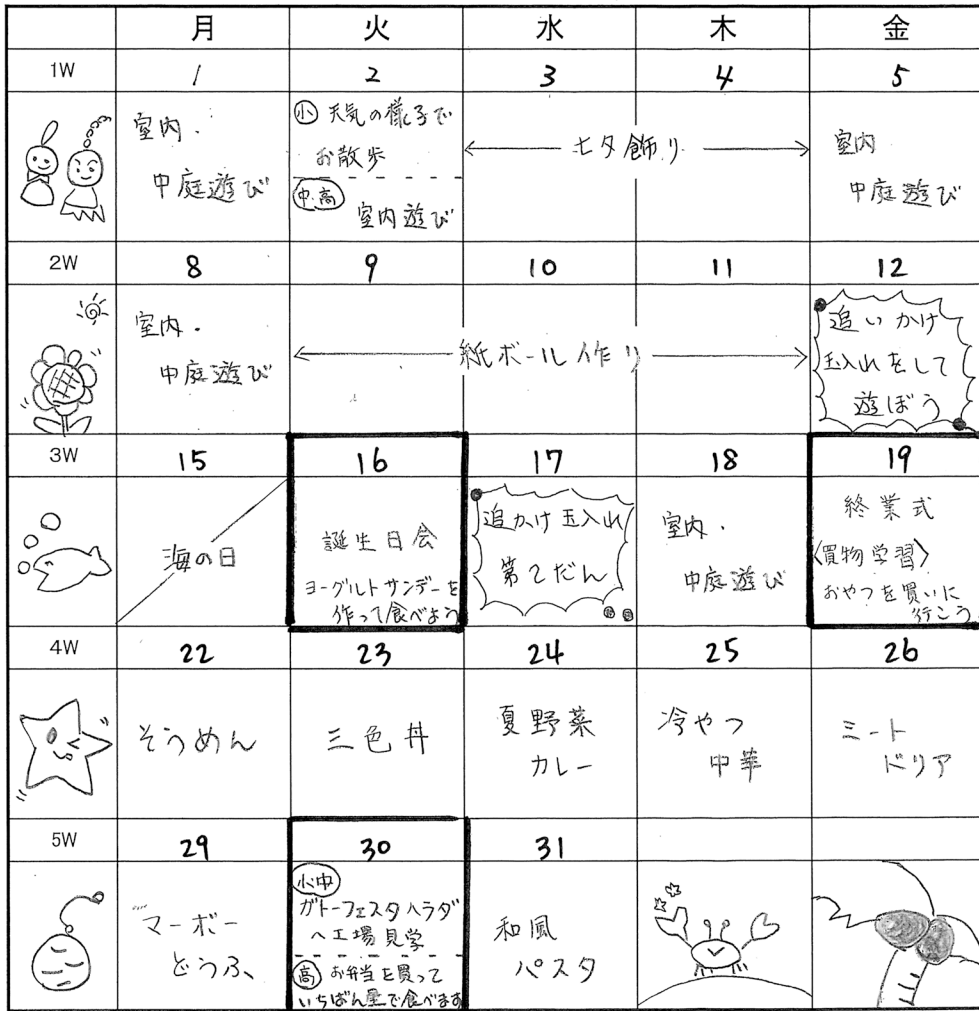 月 火 水 木 金
1W 1 2 3 4 5
室内・
中庭遊び
小 天気の様子で
お散歩
中・高
室内遊び
七夕飾り
室内
中庭遊び
2W 8 9 10 11 12
室内・
中庭遊び
紙ボール作り
追いかけ
玉入れをして
遊ぼう
3W 15 16 17 18 19
海の日
誕生日会
ヨーグルトサンデーを
作って食べよう
追かけ玉入れ
第2だん
室内・
中庭遊び
終業式
〈買物学習〉
おやつを買いに
行こう
4W 22 23 24 25 26
そうめん
三色丼
夏野菜
カレー
冷やし
中華
ミート
ドリア
5W 29 30 31
マーボー
どうふ
小中
ガトーフェスタハラダ
へ工場見学
高 お弁当を買って
いちばん星で食べます
和風
パスタ